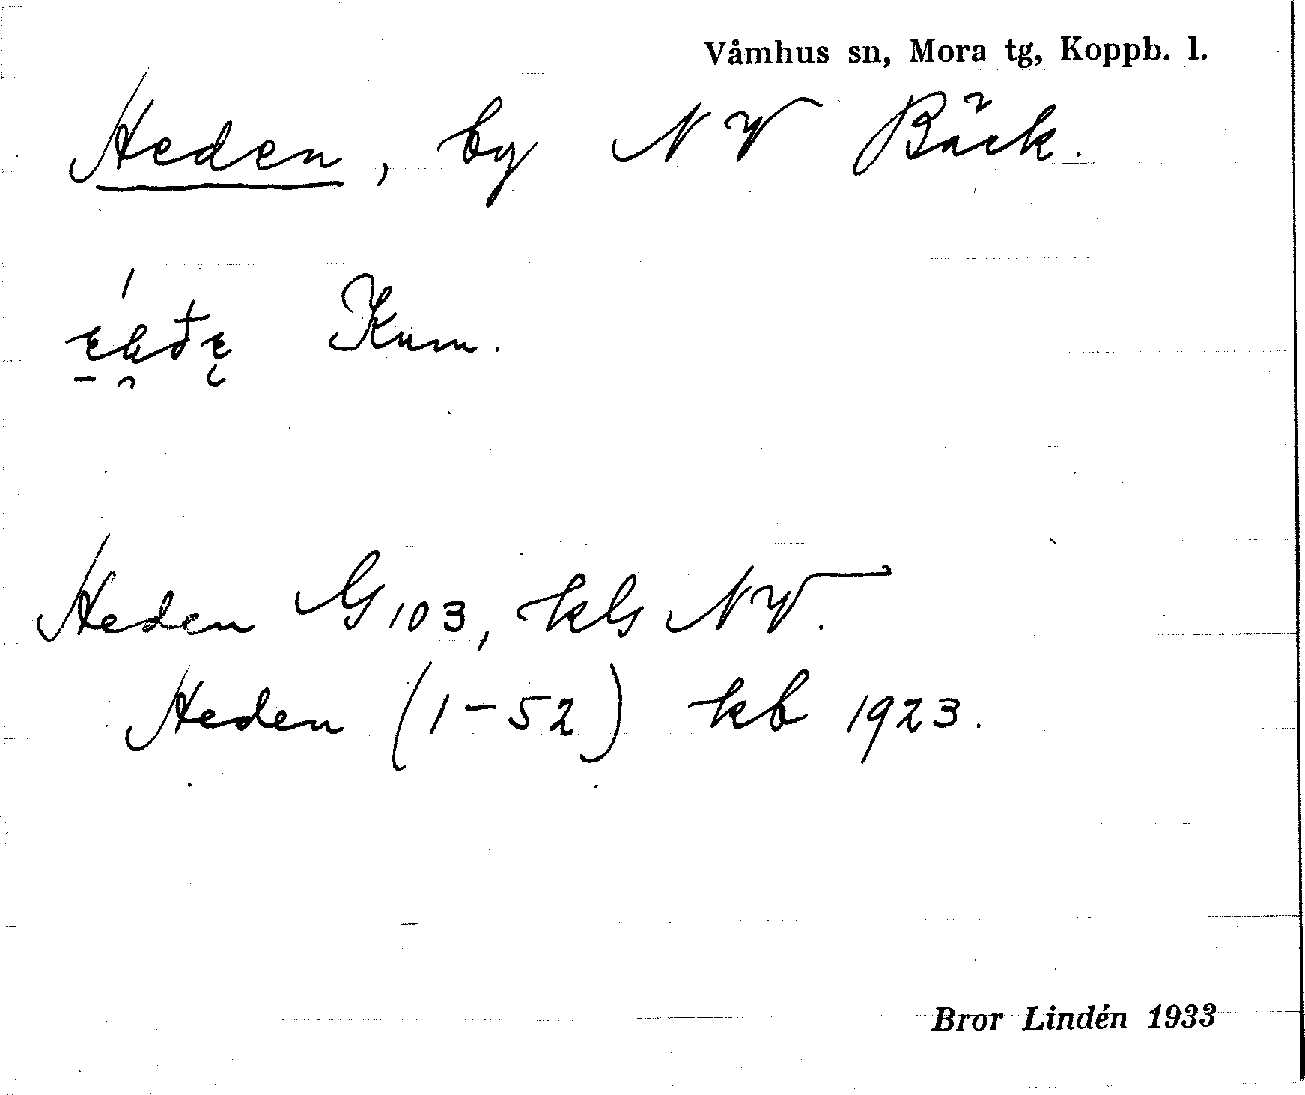 Våmhus sn, Mora tg, Koppb. l.
Heden, by NV Bäck.
Kum.
Heden G103, kls NV.
Heden (1-52) kb 1923.
Bror Lindén 1933